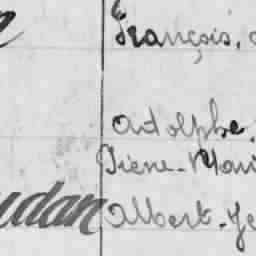 François,
Adolphe,
Irène-Mari
udan Albert-Je